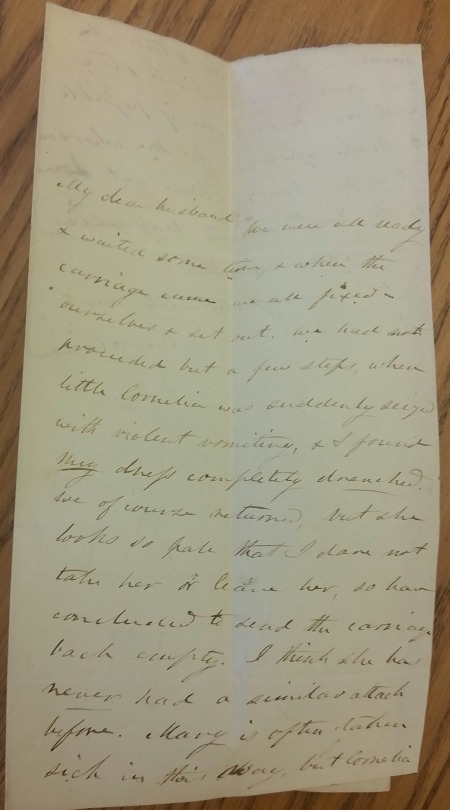 My dear husband We were all ready
& waited some time, & when the
carriage came we all fixed
ourselves & set out. we had not
proceeded but a few steps, when
little Cornelia was suddenly seized
with violent vomiting, & I found
my dress completely drenched.
we of course returned, but she
looks so pale that I dare not
take her or leave her, so have
concluded to send the carriage
back empty. I think she has
never had a similar attack
before. Mary is often taken
sick in this way, but Cornelia